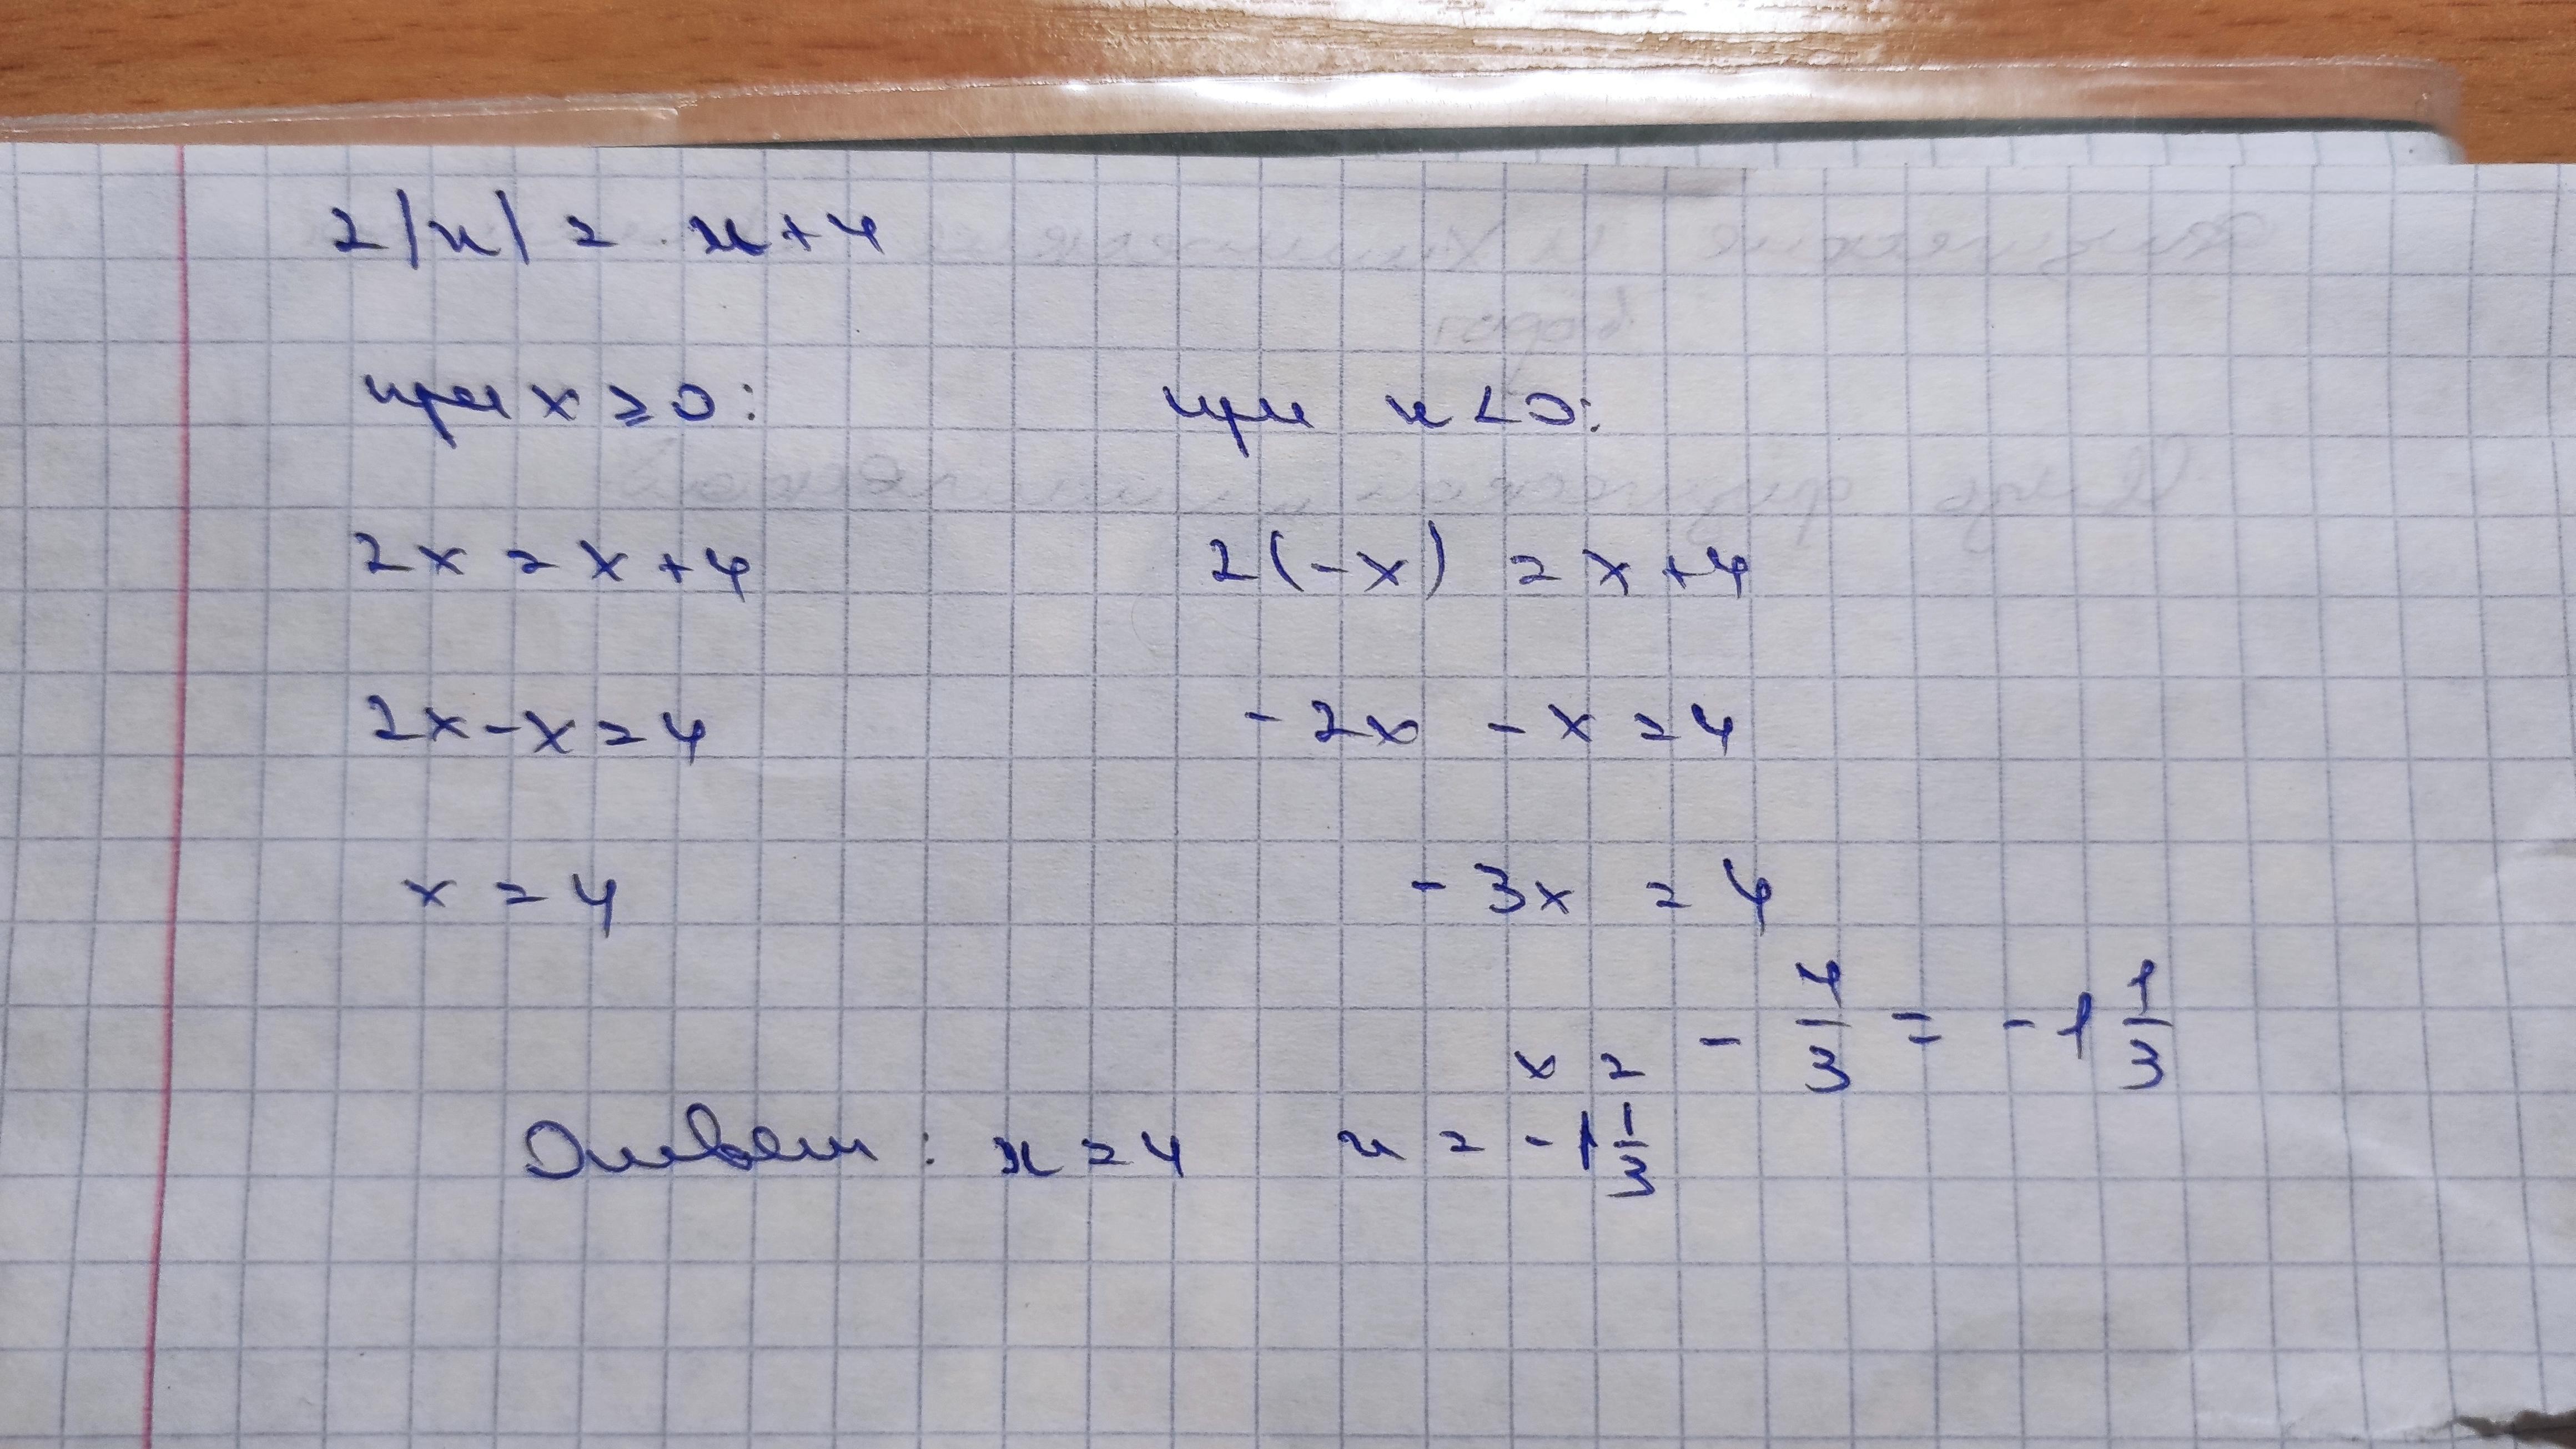 2|x| = x+4
при x ≥ 0:
при x < 0:
2x = x+4
2(-x) = x+4
2x-x=4
-2x -x=4
x = 4
-3x = 4
x = -4/3 = -1 1/3
Ответ: x=4 x = -1 1/3